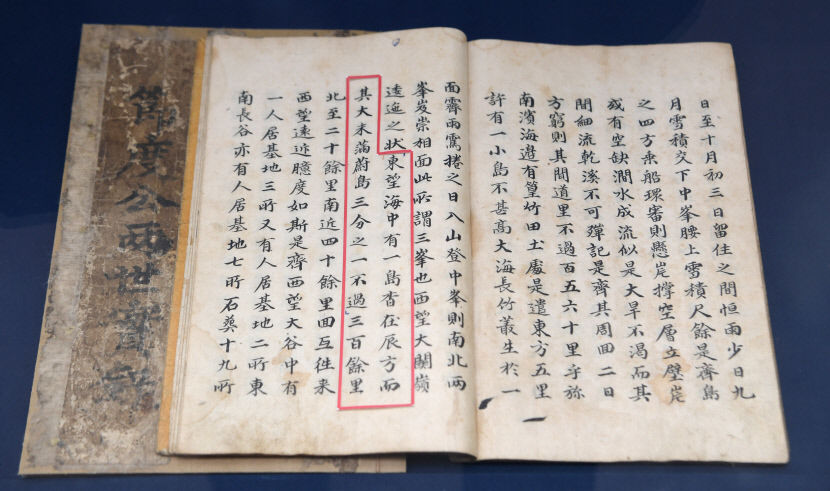 日至十月初三日留住之間恒雨少日九
月雪積交下中峯腰上雪積尺餘是齊島
之四方乘船環審則懸崖撑空層立壁岸
或有空缺澗水成流似是大旱不渴而其
間細流乾溪不可殫記是齊其周回二日
方窮則其間道里不過百五六十里乎旀
南濱海邊有篁竹田土處是遣東方五里
許有一小島不甚高大海長竹叢生於一
面霽雨霾捲之日入山登中峯則南北兩
峯岌崇相面此所謂三峯也西望大關嶺
逶迤之狀東望海中有一島杳在辰方而
其大未滿蔚島三分之一不過三百餘里
北至二十餘里南近四十餘里回互徃來
西望遠近臆度如斯是齊西望大谷中有
一人居基地三所又有人居基地二所東
南長谷亦有人居基地七所石葬十九所
節度公兩世實錄